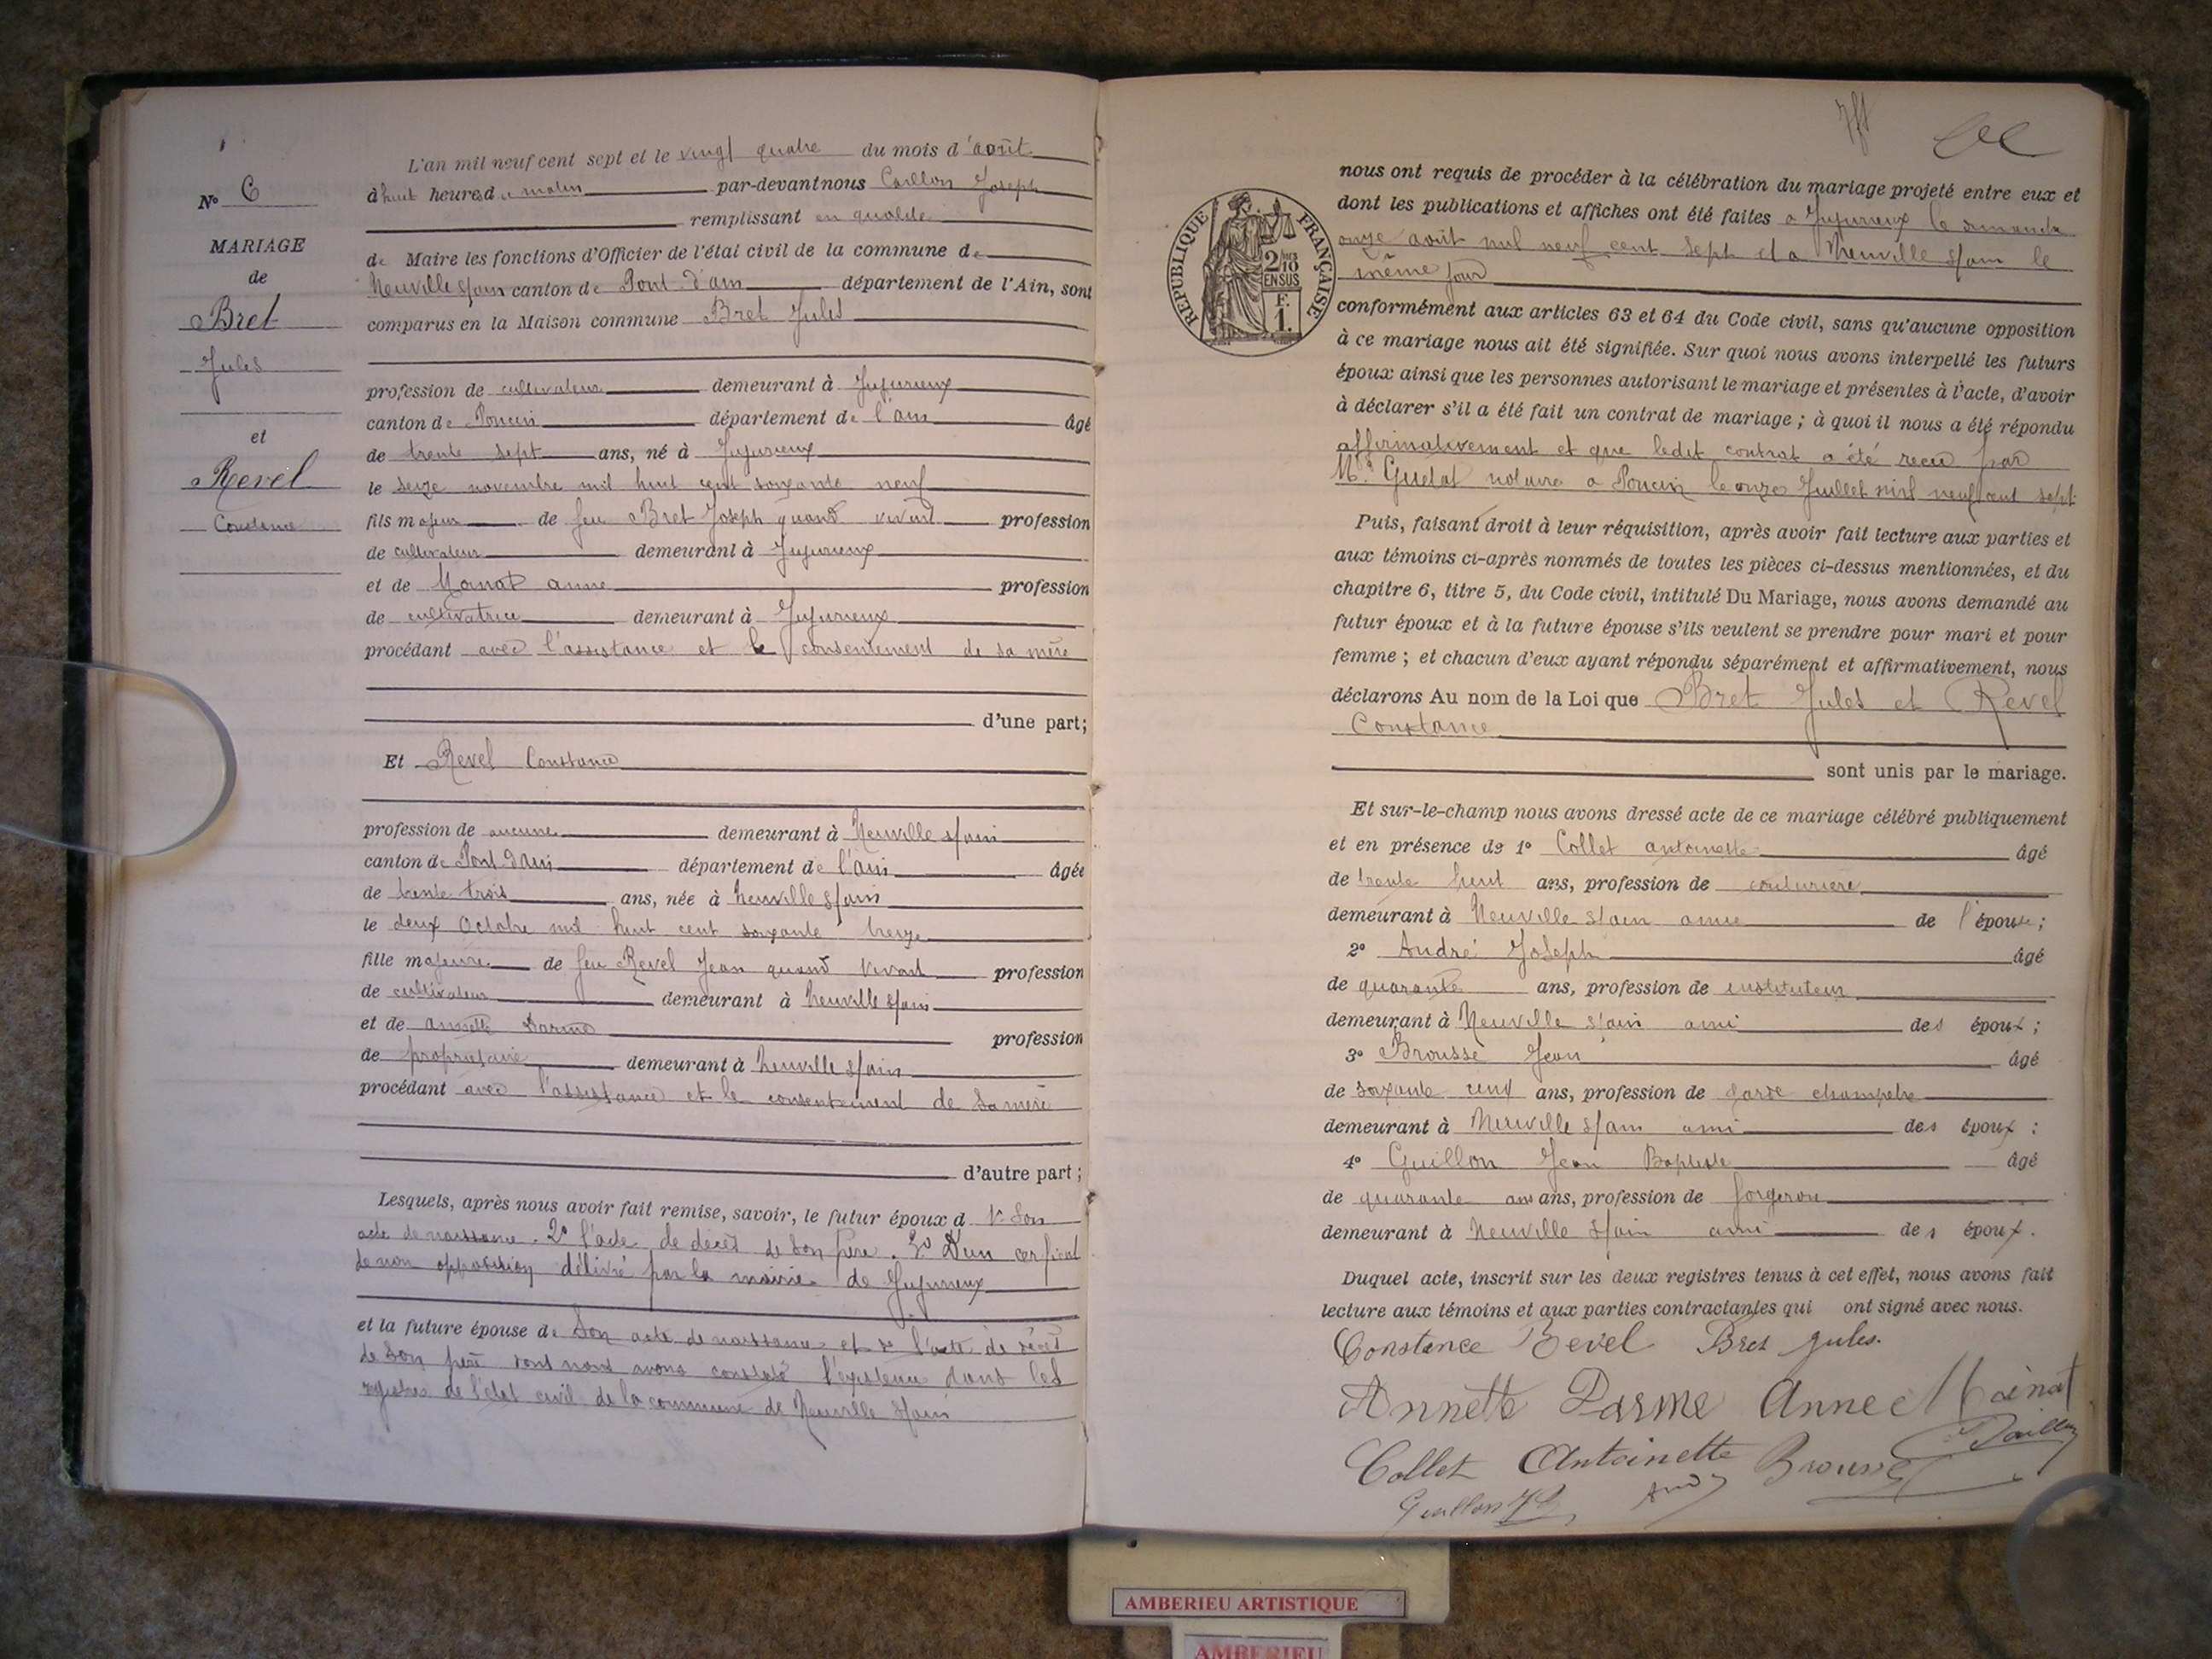 L'an mil neuf cent sept et le vingt quatre du mois d'août
à huit heures d matin par-devant nous Joseph
remplissant en qualité
de Maire les fonctions d'Officier de l'état civil de la commune de
Neuville s/ain canton de Pont d'ain département de l'Ain, sont
comparus en la Maison commune Bret Jules
profession de cultivateur demeurant à Jujurieux
canton de Poncin département de l'ain âgé
de trente sept ans, né à Jujurieux
le seize novembre mil huit cent soixante neuf
fils majeur de feu Bret Joseph quand vivant profession
de cultivateur demeurant à Jujurieux
et de Mainat anne profession
de cultivatrice demeurant à Jujurieux
procédant avec l'assistance et le consentement de sa mère
d'une part;
Et Revel Constance
profession de aucune demeurant à Neuville s/ain
canton de Pont d'ain département de l'ain âgée
de trente trois ans, née à Neuville s/ain
le deux Octobre mil huit cent soixante treize
fille majeure de feu Revel Jean quand vivant profession
de cultivateur demeurant à Neuville s/ain
et de annette Darme profession
de propriétaire demeurant à Neuville s/ain
procédant avec l'assistance et le consentement de sa mère
d'autre part;
Lesquels, après nous avoir fait remise, savoir, le futur époux d 1° Son
acte de naissance. 2° l'acte de décès de son père. 3° D'un cerficat
de non opposition délivré par la mairie de Jujurieux
et la future épouse de Son acte de naissance et de l'acte de décès
de son père dont nous avons constaté l'existence dans les
registres de l'état civil de la commune de Neuville s/ain
N° 6
MARIAGE
de
Bret
Jules
et
Revel
Constance
nous ont requis de procéder à la célébration du mariage projeté entre eux et
dont les publications et affiches ont été faites a Jujurieux le dimanche
onze août mil neuf cent sept et a Neuville s/ain le
même jour
conformément aux articles 63 et 64 du Code civil, sans qu'aucune opposition
à ce mariage nous ait été signifiée. Sur quoi nous avons interpellé les futurs
époux ainsi que les personnes autorisant le mariage et présentes à l'acte, d'avoir
à déclarer s'il a été fait un contrat de mariage; à quoi il nous a été répondu
affirmativement et que ledit contrat a été recu par
notaire a Poncin le onze Juillet mil neuf cent sept
Puis, faisant droit à leur réquisition, après avoir fait lecture aux parties et
aux témoins ci-après nommés de toutes les pièces ci-dessus mentionnées, et du
chapitre 6, titre 5, du Code civil, intitulé Du Mariage, nous avons demandé au
futur époux et à la future épouse s'ils veulent se prendre pour mari et pour
femme; et chacun d'eux ayant répondu séparément et affirmativement, nous
déclarons Au nom de la Loi que Bret Jules et Revel
Constance
sont unis par le mariage.
Et sur-le-champ nous avons dressé acte de ce mariage célébré publiquement
et en présence de 1° Collet antoinette âgé
de trente huit ans, profession de couturière
demeurant à Neuville s/ain amie de l'épouse;
2° André Joseph âgé
de quarante ans, profession de instituteur
demeurant à Neuville s/ain ami des époux;
3° Brousse Jean âgé
de soixante ans, profession de garde champetre
demeurant à Neuville s/ain ami des époux:
4° Guillon Jean Baptiste âgé
de quarante ans ans, profession de forgeron
demeurant à Neuville s/ain ami des époux.
Duquel acte, inscrit sur les deux registres tenus à cet effet, nous avons fait
lecture aux témoins et aux parties contractantes qui ont signé avec nous.
Constance Revel Bret jules.
Annette Darme Anne Mainat
Collet Antoinette Brousse
Guillon
RÉPUBLIQUE FRANÇAISE
2/10
EN SUS
F.
1.
AMBERIEU ARTISTIQUE
AMBERIEU